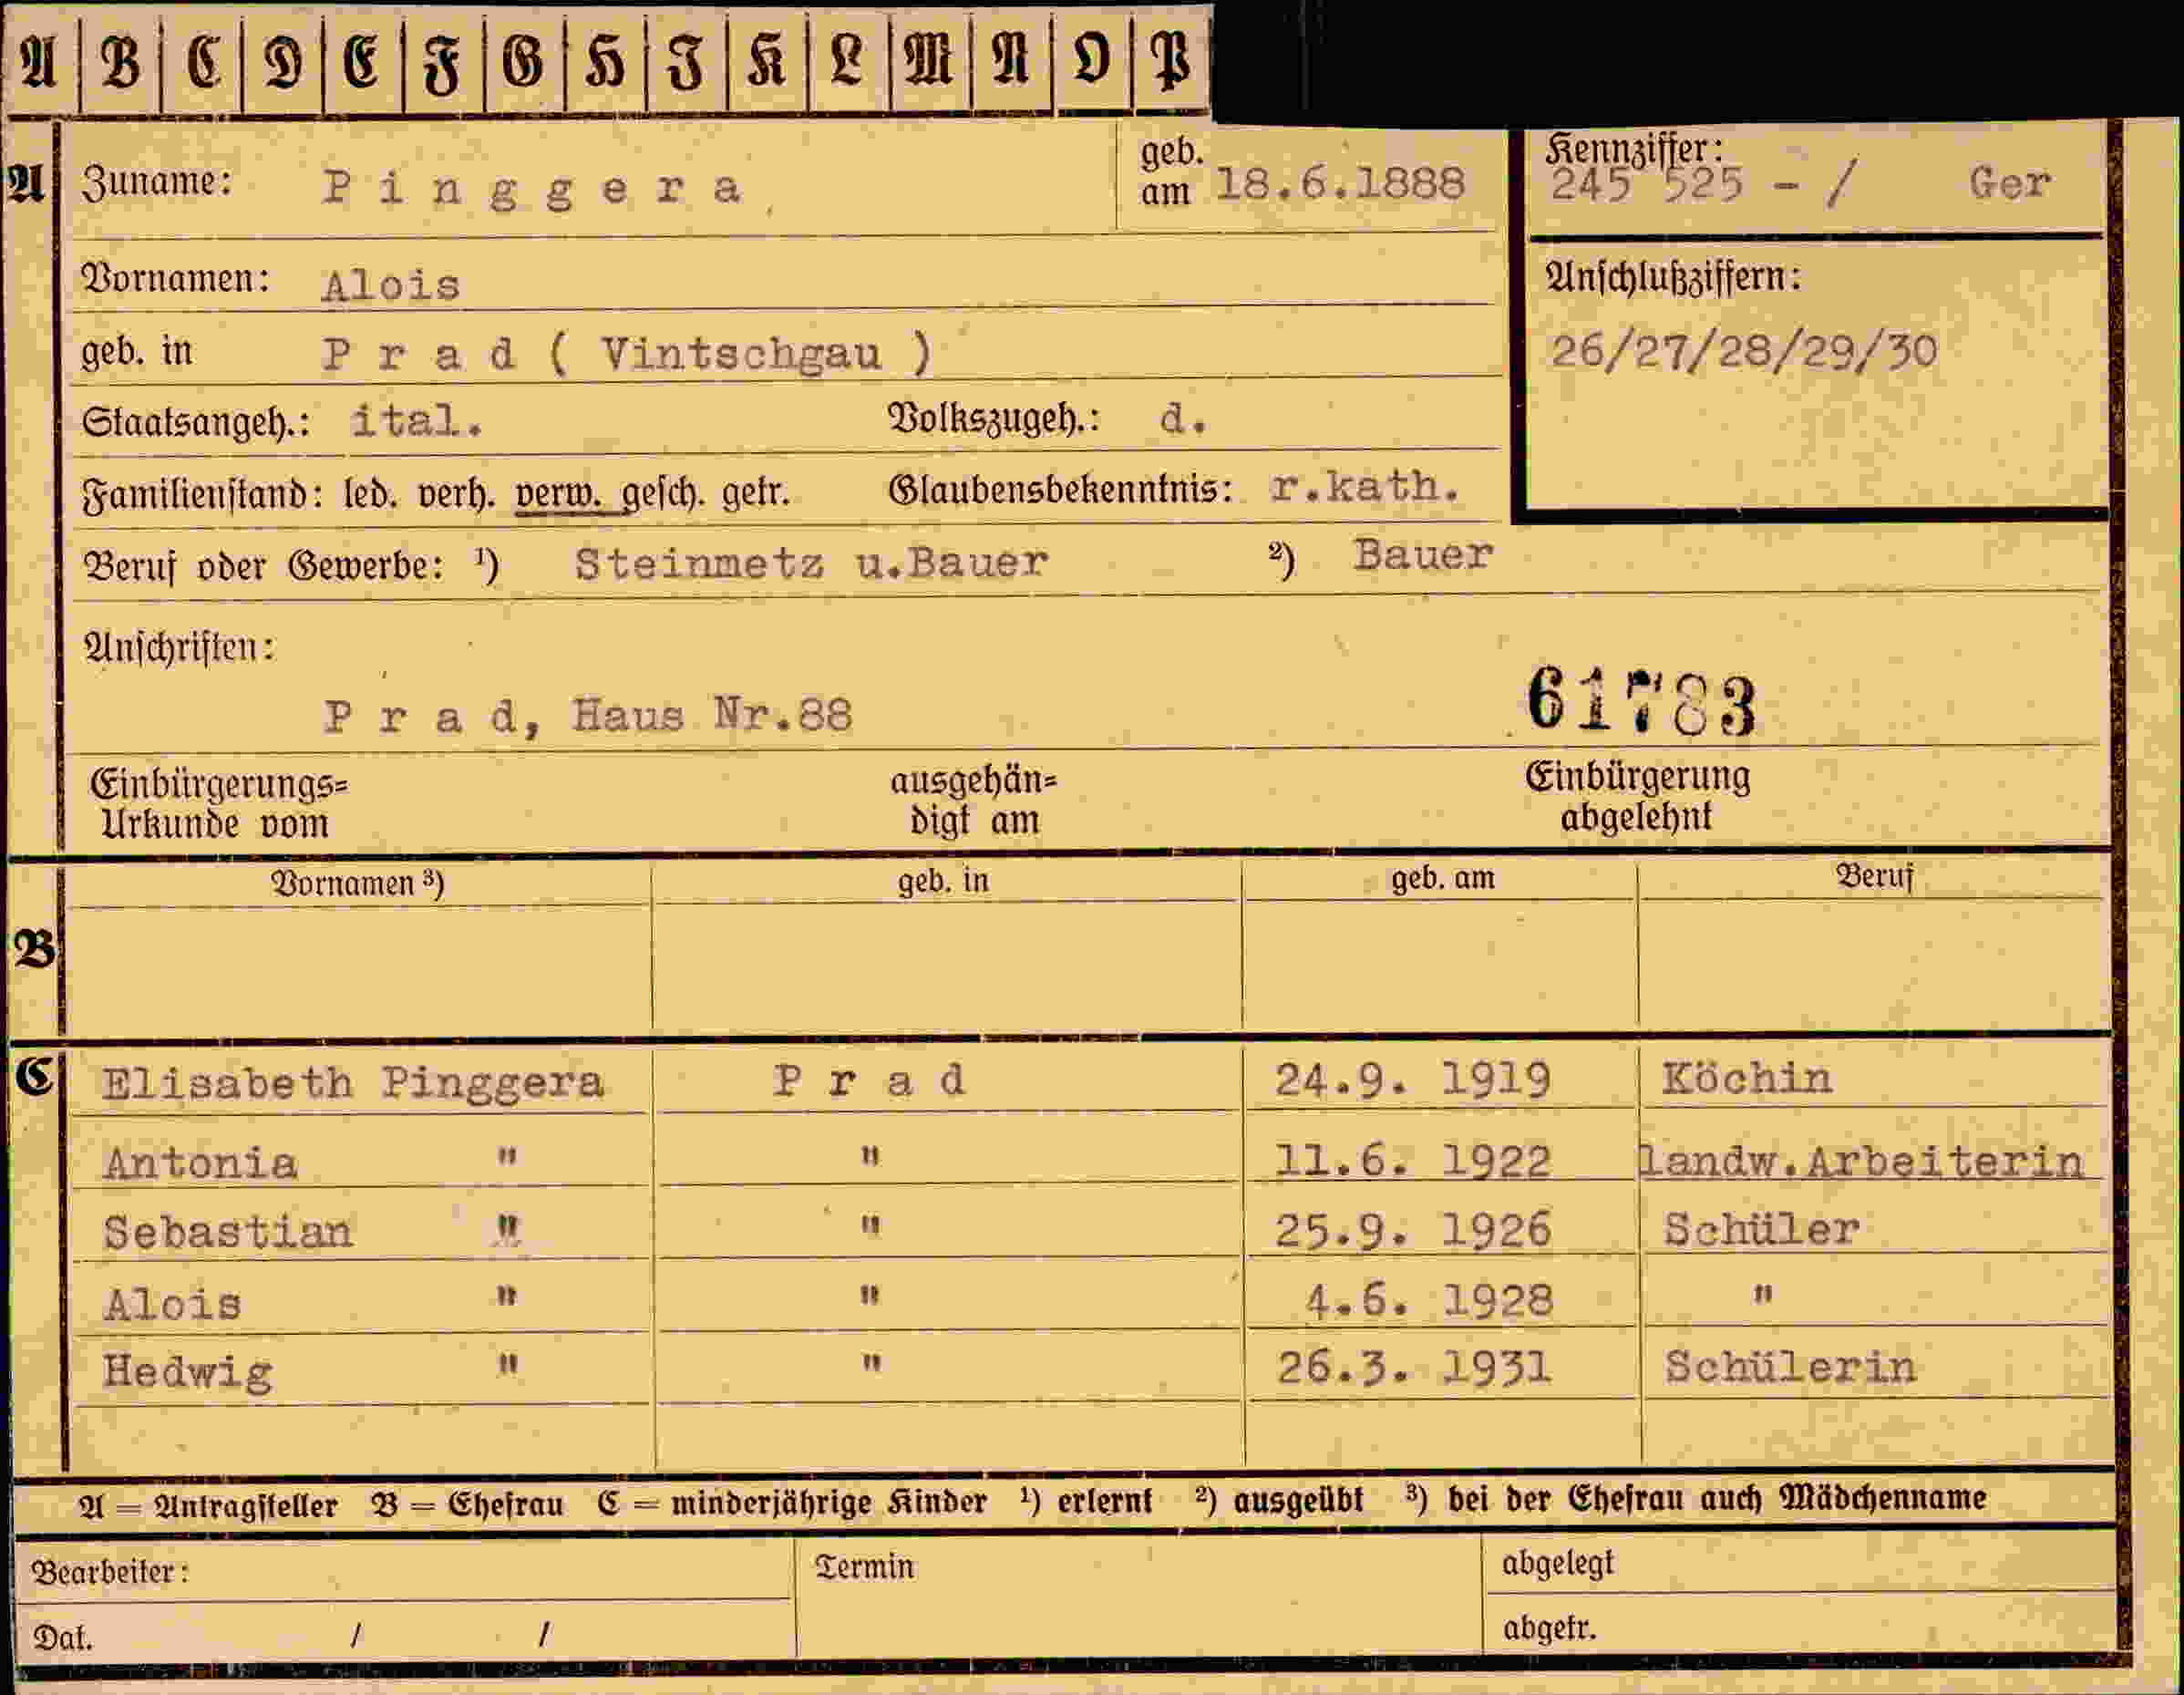 A B C D E F G H I K L M N O P
A Zuname: Pinggera geb. am 18.6.1888 Kennziffer: 245 525 - / Ger
Vornamen: Alois Anschlußziffern:
geb. in Prad ( Vintschgau ) 26/27/28/29/30
Staatsangeh.: ital. Volkszugeh.: d.
Familienstand: led. verh. verw. gesch. getr. Glaubensbekenntnis: r.kath.
Beruf oder Gewerbe: ¹) Steinmetz u.Bauer ²) Bauer
Anschriften:
Prad, Haus Nr.88 61783
Einbürgerungs= ausgehän= Einbürgerung
Urkunde vom digt am abgelehnt
Vornamen ³) geb. in geb. am Beruf
B
C Elisabeth Pinggera Prad 24.9. 1919 Köchin
Antonia " " 11.6. 1922 landw.Arbeiterin
Sebastian " " 25.9. 1926 Schüler
Alois " " 4.6. 1928 "
Hedwig " " 26.3. 1931 Schülerin
A = Antragsteller B = Ehefrau C = minderjährige Kinder ¹) erlernt ²) ausgeübt ³) bei der Ehefrau auch Mädchenname
Bearbeiter: Termin abgelegt
Dat. / / abgetr.